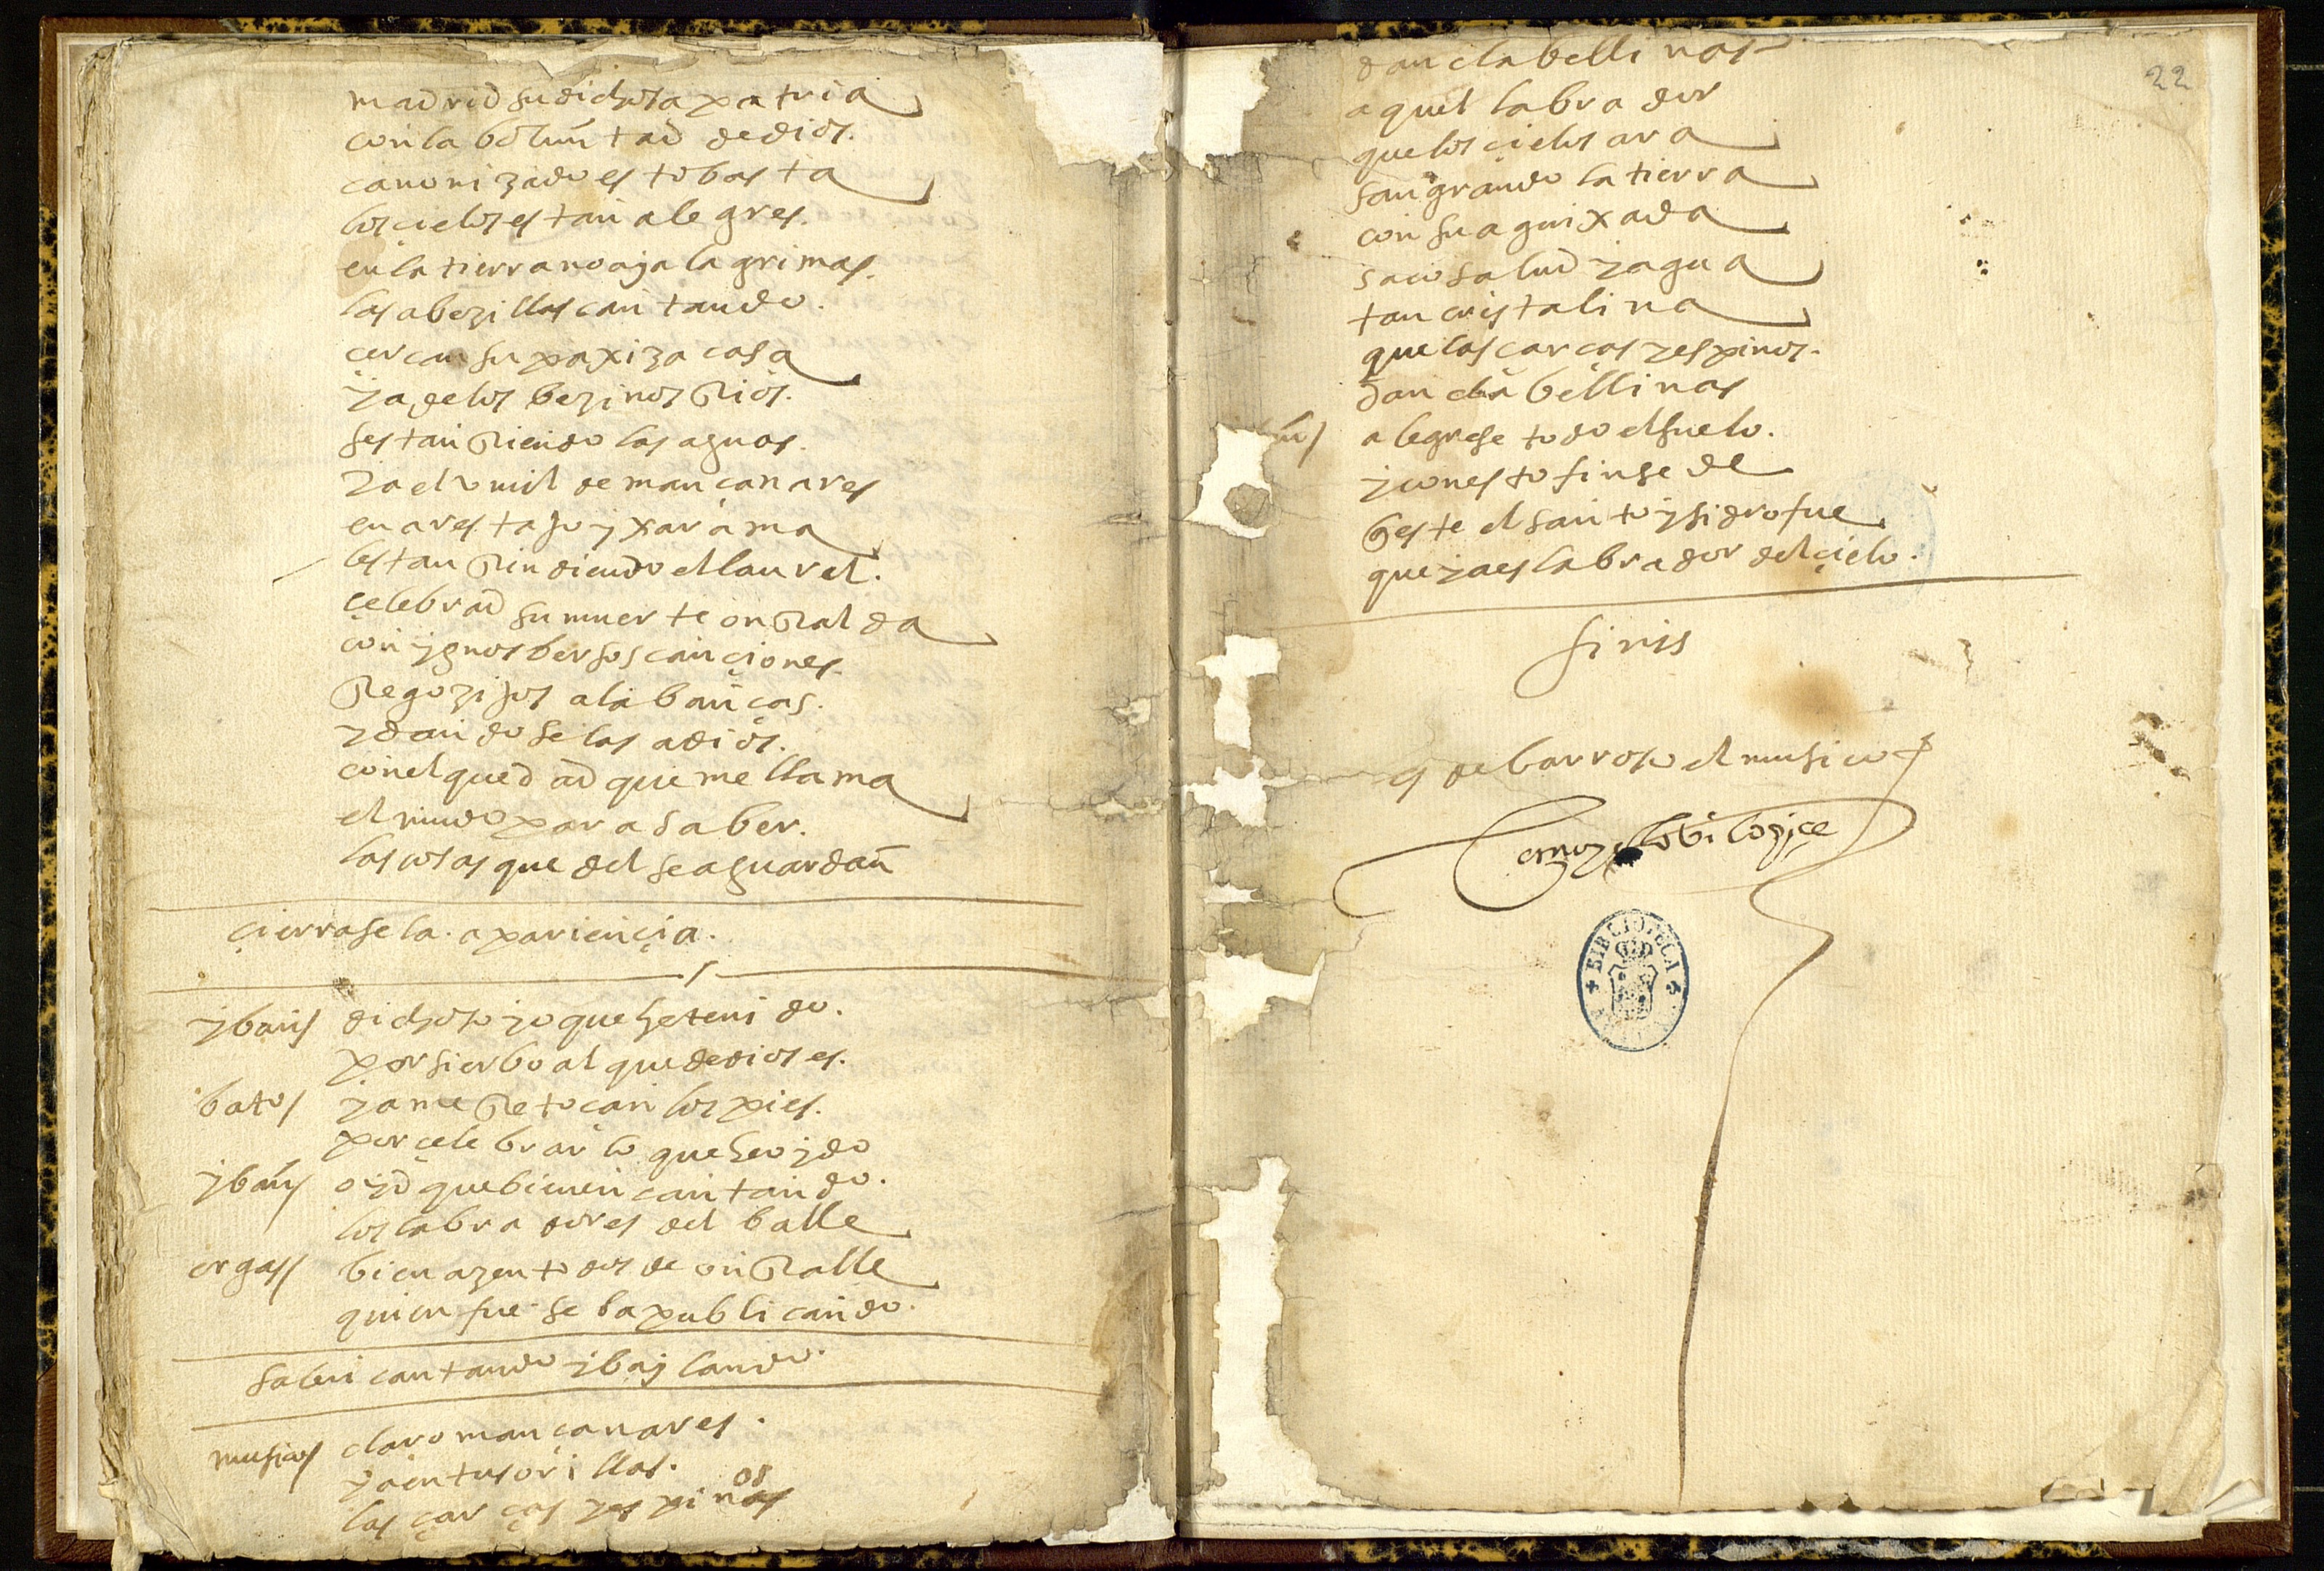 madrid su dichosa patria
con la boluntad de dios.
canoniçado esto basta
los çielos estan alegres.
en la tierra no aya lagrimas.
las abezillas cantando.
cercan su paxiza casa
ya de los bezinos Rios.
sestan Riendo las aguas.
ya el umil de mançanares
enares tajo y xarama
lestan Rindiendo el laurel.
çelebrad su muerte onRalda
con ygnos bersos cançiones.
Regozijos alabanças.
y dandoselas a dios.
con el quedad que me llama
el mudo para saber.
las cosas que del se aguardan
çierrase la apariençia.
yban/ dichoso yo que he tenido.
por sierbo al que de dios es.
bato/ ya me Retoçan los pies.
por çelebrar lo que he oydo
yban/ oyd que bienen cantando.
los labradores del balle
orgas/ bien azentos de onRalle
quien fue se ba publicando.
salen cantando y baylando.
musicos/ claro mançanares.
ya en tus orillas.
las çarças yespinos
dan clabellinas
22
aquel labrador
que los çielos ara
sangrando la tierra
con su aguixada
saco salud y agua
tan cristalina
que las çarças y espinos.
dan clabellinas
alegrese todo el suelo.
y con esto fin se de
queste el santo ysidro fue
que ya es labrador del çielo.
finis
de barroso el musico
BIBLIOTECA